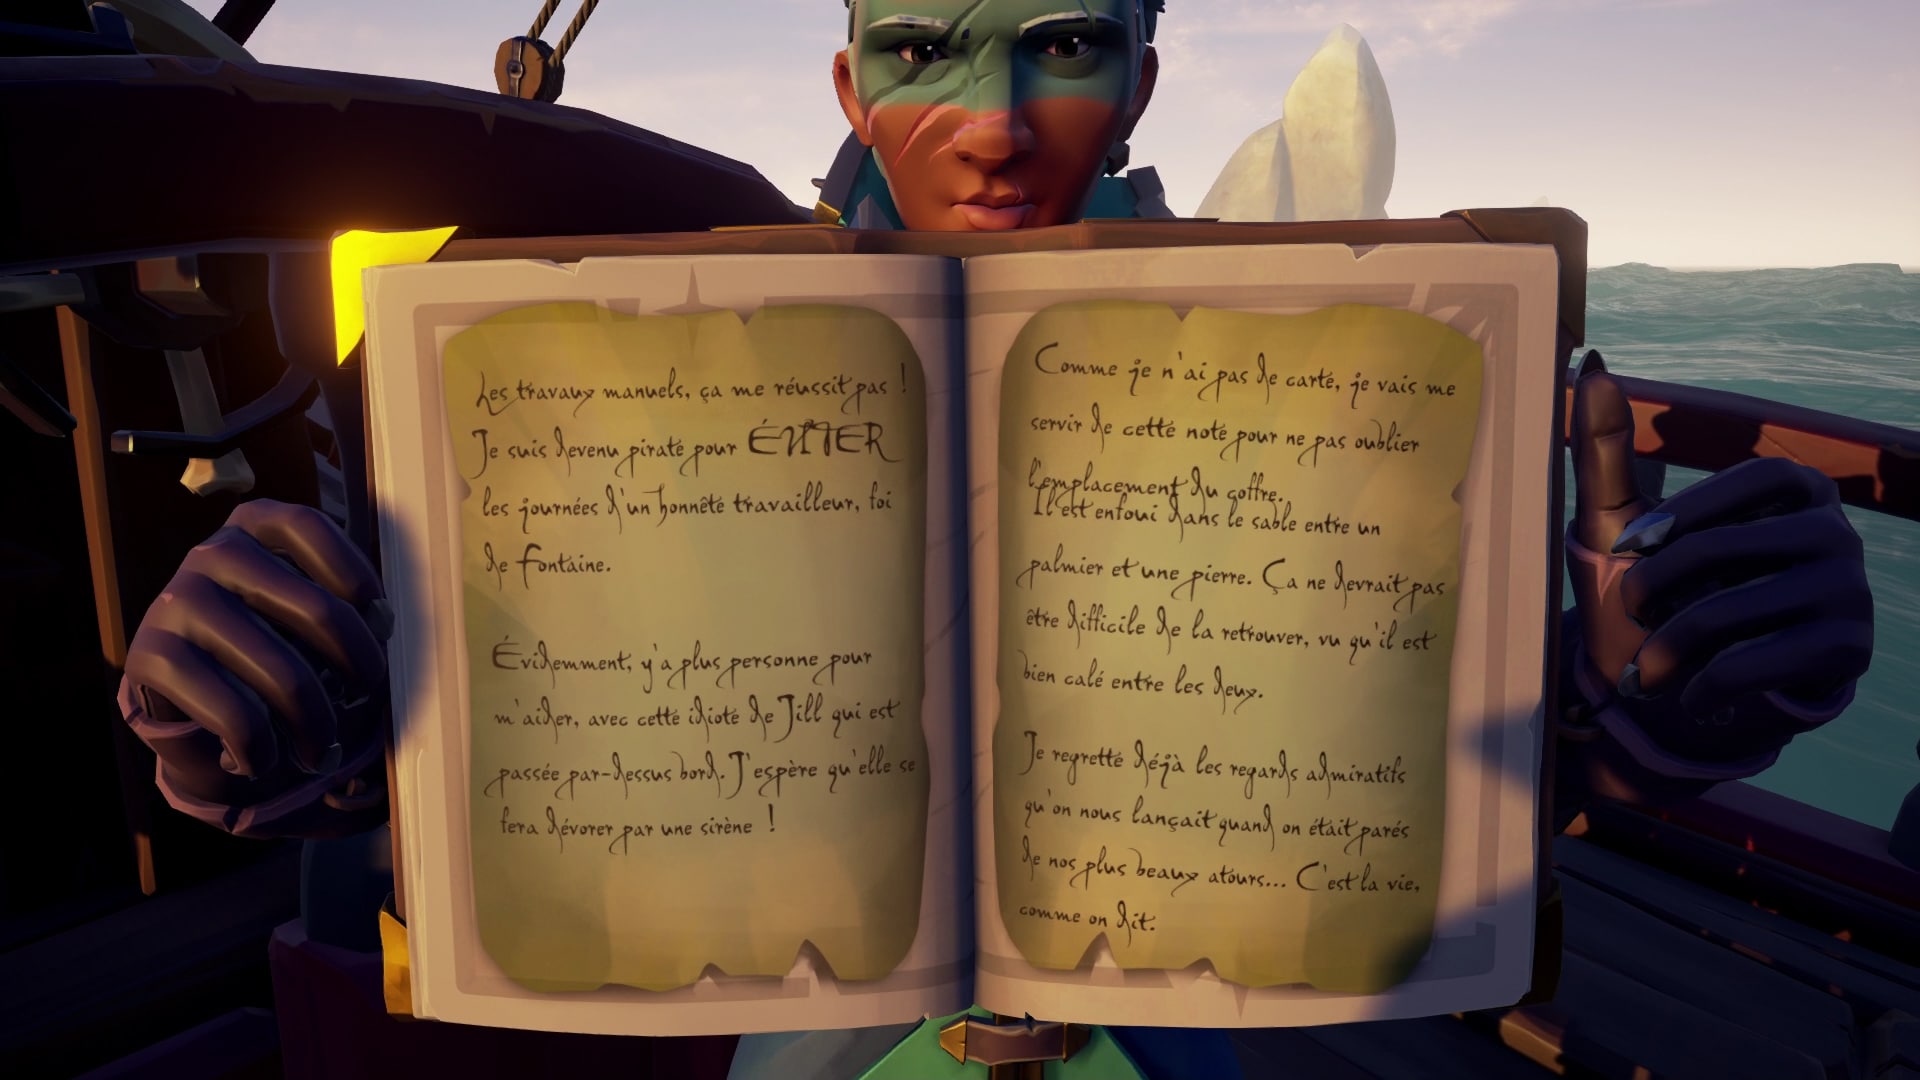 Les travaux manuels, ça me réussit pas !
Je suis devenu pirate pour ÉVITER
les journées d'un honnête travailleur, foi
de Fontaine.
Évidemment, y'a plus personne pour
m'aider, avec cette idiote de Jill qui est
passée par-dessus bord. J'espère qu'elle se
fera dévorer par une sirène !
Comme je n'ai pas de carte, je vais me
servir de cette note pour ne pas oublier
l'emplacement du coffre.
Il est enfoui dans le sable entre un
palmier et une pierre. Ça ne devrait pas
être difficile de la retrouver, vu qu'il est
bien calé entre les deux.
Je regrette déjà les regards admiratifs
qu'on nous lançait quand on était parés
de nos plus beaux atours... C'est la vie,
comme on dit.